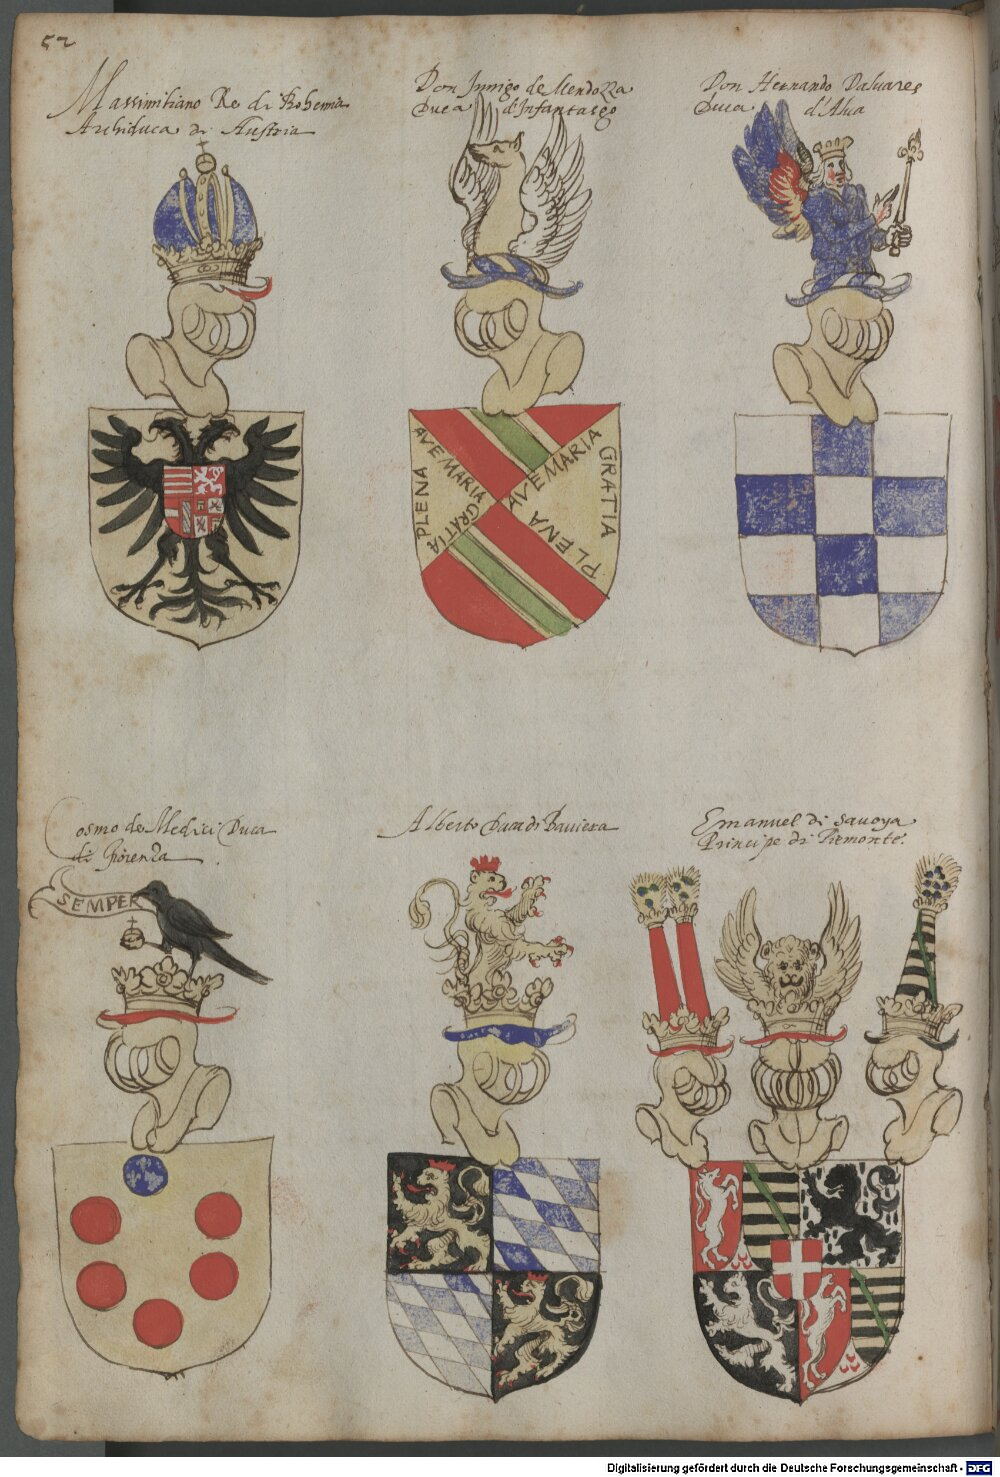 52
Massimiliano Re di Bohemia
Archiduca di Austria
Don Innigo de Mendozza
Duca d'Infantasgo
Don Hernando Daluares
Duca d'Alua
AVE MARIA GRATIA
PLENA
AVE MARIA
GRATIA
PLENA
Cosmo de Medici Duca
di Fiorenza
SEMPER
Alberto Duca di Bauiera
Emanuel di Sauoya
Principe di Piemonte.
Digitalisierung gefördert durch die Deutsche Forschungsgemeinschaft - DFG